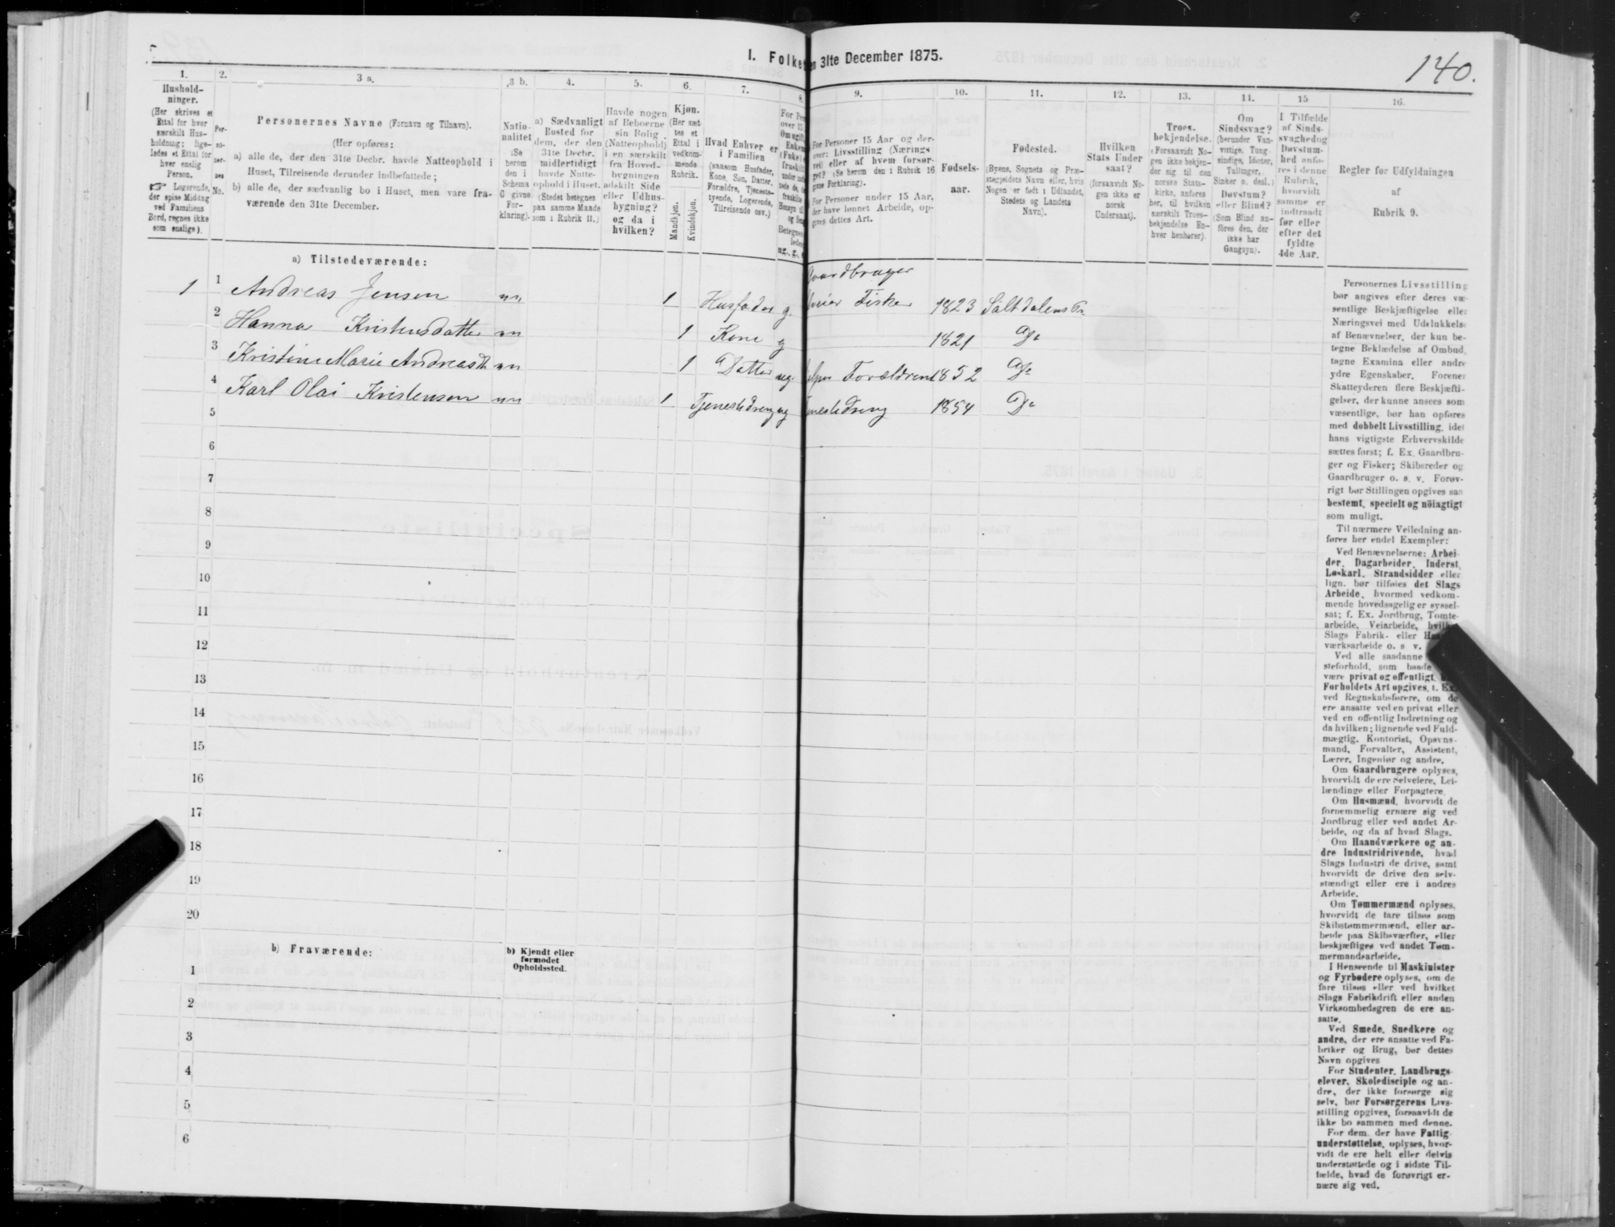 140.
1. Folke
n 31te December 1875.
1.
2.
3 a.
3 b.
4.
5.
6.
7.
8.
9.
10.
11.
12.
13.
14.
15
16.
Hushold-
ninger.
(Her skrives et
Ettal for hver
særskilt Hus-
holdning; lige-
ledes et Ettal for
hver enslig
Person.
☞ Logerende,
der spise Middag
ved Familiens
Bord, regnes ikke
som enslige).
Per-
so-
ner-
nes
No.
Personernes Navne (Fornavn og Tilnavn).
(Her opføres:
a) alle de, der den 31te Decbr. havde Natteophold i
Huset, Tilreisende derunder indbefattede;
b) alle de, der sædvanlig bo i Huset, men vare fra-
værende den 31te December.
Natio-
nalitet
(Se
herom
den i
Schema
C givne
For-
klaring).
a) Sædvanligt
Bosted for
dem, der den
31te Decbr.
midlertidigt
havde Natte-
ophold i Huset.
(Stedet betegnes
paa samme Maade
som i Rubrik 11.)
Havde nogen
af Beboerne
sin Bolig
(Natteophold)
i en særskilt
fra Hoved-
bygningen
adskilt Side
eller Udhus-
bygning?
og da i
hvilken?
Kjøn.
(Her sæt-
tes et
Ettal i
vedkom-
mende
Rubrik.
Mandkjøn.
Kvindekjøn.
Hvad Enhver er
i Familien
(saasom Husfader,
Kone, Søn, Datter,
Forældre, Tjeneste-
tyende, Logerende,
Tilreisende osv.)
For Personer 15 Aar og der-
over: Livsstilling (Nærings-
vei) eller af hvem forsør-
get? (Se herom den i Rubrik 16
givne Forklaring).
For Personer under 15 Aar,
der have lønnet Arbeide, op-
gives dettes Art.
Fødsels-
aar.
Fødested.
(Byens, Sognets og Præ-
stegjeldets Navn eller, hvis
Nogen er født i Udlandet,
Stedets og Landets
Navn).
Hvilken
Stats Under-
saat?
(forsaavidt No-
gen ikke er
norsk
Undersaat).
Troes-
bekjendelse.
(Forsaavidt No-
gen ikke bekjen-
der sig til den
norske Stats-
kirke, anføres
her, til hvilken
særskilt Troes-
bekjendelse En-
hver henhører).
Om
Sindssvag?
(herunder Van-
vittige, Tung-
sindige, Idioter,
Tullinger,
Sinker o. desl.)
Døvstum?
eller Blind?
(Som Blind an-
føres den, der
ikke har
Gangsyn).
I Tilfælde
af Sinds-
svaghed og
Døvstum-
hed anfø-
res i denne
Rubrik,
hvorvidt
samme er
indtraadt
før eller
efter det
fyldte
4de Aar.
Regler for Udfyldningen
af
Rubrik 9.
a) Tilstedeværende:
1 1 Andreas Jensen nn 1 Husfader g. Gaardbruger Selveier Fisker 1823 Saltdalens Pr
2 Hanna Kristensdatter nn 1 Kone g 1821 Do
3 Kristine Marie Andreasdtr nn 1 Datter ug. hjelper Forældrene 1852 Do
4 Karl Olai Kristensen nn 1 Tjenestedreng ug Tjenestedreng 1854 Do
5
6
7
8
9
10
11
12
13
14
15
16
17
18
19
20
b) Fraværende:
b) Kjendt eller
formodet
Opholdssted.
1
2
3
4
5
6
Personernes Livsstilling
bør angives efter deres væ-
sentlige Beskjæftigelse eller
Næringsvei med Udelukkelse
af Benævnelser, der kun be-
tegne Beklædelse af Ombud,
tagne Examina eller andre
ydre Egenskaber. Forener
Skatteyderen flere Beskjæfti-
gelser, der kunne ansees som
væsentlige, bør han opføres
med dobbelt Livsstilling, idet
hans vigtigste Erhvervskilde
sættes først; f. Ex. Gaardbru-
ger og Fisker; Skibsreder og
Gaardbruger o. s. v. Forøv-
rigt bør Stillingen opgives saa
bestemt, specielt og nöiagtigt
som muligt.
Til nærmere Veiledning an-
føres her endel Exempler:
Ved Benævnelserne: Arbei-
der, Dagarbeider, Inderst,
Løskarl, Strandsidder eller
lign. bør tilføies det Slags
Arbeide, hvormed vedkom-
mende hovedsagelig er syssel-
sat; f. Ex. Jordbrug, Tomte-
arbeide, Veiarbeide, hvilket
Slags Fabrik- eller
værksarbeide o. s. v.
Ved alle saadanne
steforhold, som baade
være privat og offentligt,
Forholdets Art opgives, t. Ex.
ved Regnskabsførere, om de
ere ansatte ved en privat eller
ved en offentlig Indretning og
da hvilken; lignende ved Fuld-
mægtig, Kontorist, Opsyns-
mand, Forvalter, Assistent,
Lærer, Ingeniør og andre.
Om Gaardbrugere oplyses,
hvorvidt de ere Selveiere, Lei-
lændinge eller Forpagtere.
Om Husmænd, hvorvidt de
fornemmelig ernære sig ved
Jordbrug eller ved andet Ar-
beide, og da af hvad Slags.
Om Haandværkere og an-
dre Industridrivende, hvad
Slags Industri de drive, samt
hvorvidt de drive den selv-
stændigt eller ere i andres
Arbeide.
Om Tømmermænd oplyses,
hvorvidt de fare tilsøs som
Skibstømmermænd, eller ar-
beide paa Skibsværfter, eller
beskjæftiges ved andet Tøm-
mermandsarbeide.
I Henseende til Maskinister
og Fyrbødere oplyses, om de
fare tilsøs eller ved hvilket
Slags Fabrikdrift eller anden
Virksomhedsgren de ere an-
satte.
Ved Smede, Snedkere og
andre, der ere ansatte ved Fa-
briker og Brug, bør dettes
Navn opgives
For Studenter, Landbrugs-
elever, Skoledisciple og an-
dre, der ikke forsørge sig
selv, bør Forsørgerens Livs-
stilling opgives, forsaavidt de
ikke bo sammen med denne.
For dem, der have Fattig-
understøttelse, oplyses, hvor-
vidt de ere helt eller delvis
understøttede og i sidste Til-
fælde, hvad de forøvrigt er-
nære sig ved.